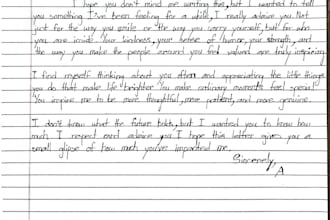 I hope you don't mind me writing this, but I wanted to tell
you something I've been feeling for a while, I really admire you. Not
just for the way you smile or the way you carry yourself, but for who
you are inside. Your kindness, your sense of humor, your strength, and
the way you make the people around you feel valued are truly inspiring
I find myself thinking about you often and appreciating the little things
you do that make life brighter. You make ordinary moments feel special.
You inspire me to be more thoughtful, more patient, and more genuine.
I don't know what the future holds, but I wanted you to know how
much I respect and admire you. I hope this letter gives you a
small glimpse of how much you've impacted me.
Sincerely,
A